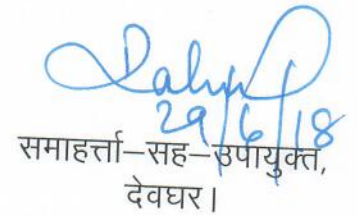 29/6/18
समाहर्त्ता–सह–उपायुक्त,
देवघर।